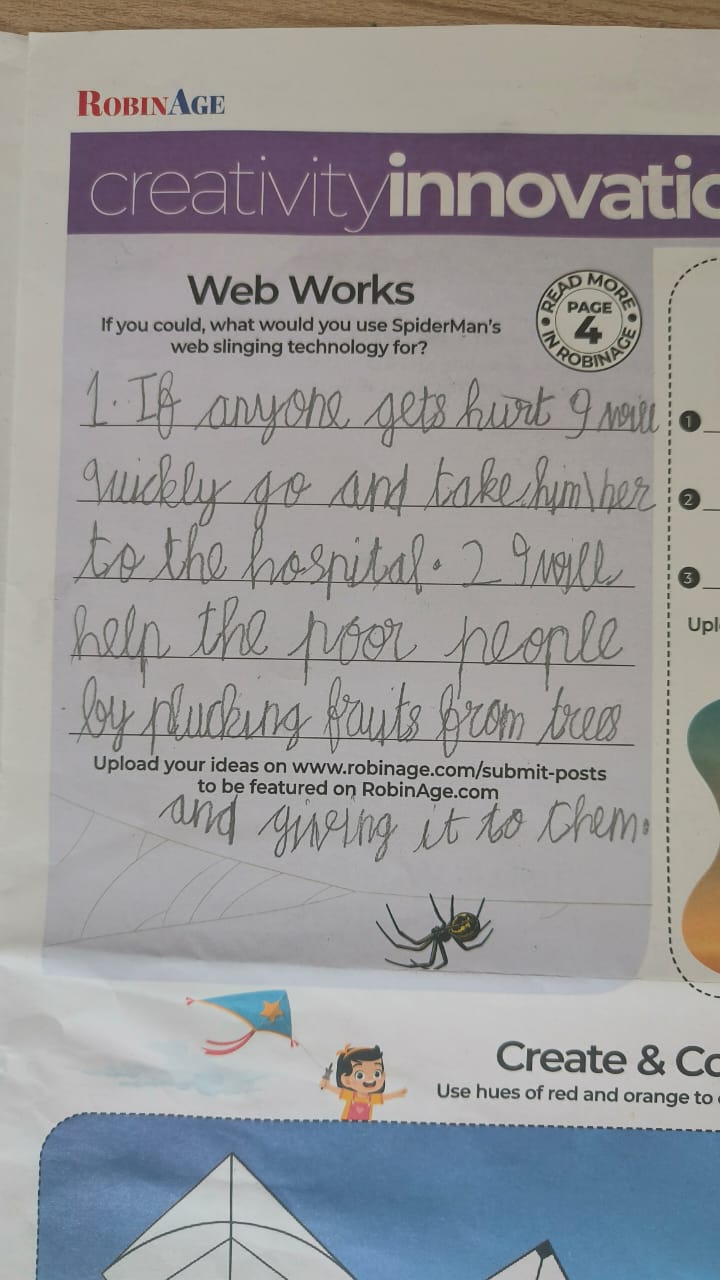 ROBINAGE
creativityinnovatio
Web Works
If you could, what would you use SpiderMan's
web slinging technology for?
READ MORE
PAGE
4
IN ROBINAGE
1. If anyone gets hurt I will
quickly go and take him\her
to the hospital. 2 I will
help the poor people
by plucking fruits from trees
Upload your ideas on www.robinage.com/submit-posts
to be featured on RobinAge.com
and giving it to them.
1
2
3
Upl
Create & Co
Use hues of red and orange to